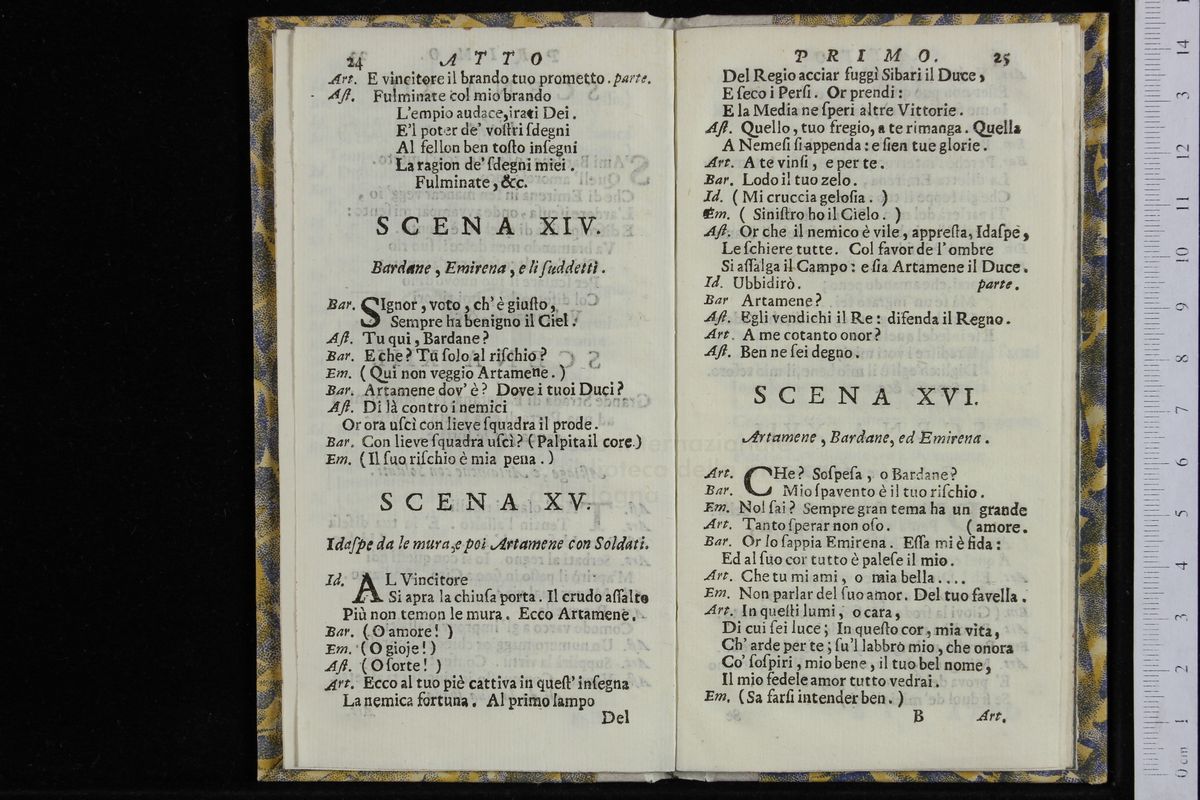 24 ATTO
Art. E vincitore il brando tuo prometto. parte.
Aſt. Fulminate col mio brando
L'empio audace, irati Dei.
E'l poter de' voſtri ſdegni
Al fellon ben toſto inſegni
La ragion de' ſdegni miei.
Fulminate, &c.
SCENA XIV.
Bardane, Emirena, e li ſuddetti.
Bar. SIgnor, voto, ch' è giuſto,
Sempre ha benigno il Ciel.
Aſt. Tu qui, Bardane?
Bar. E che? Tu ſolo al riſchio?
Em. (Qui non veggio Artamene.)
Bar. Artamene dov' è? Dove i tuoi Duci?
Aſt. Di là contro i nemici
Or ora uſcì con lieve ſquadra il prode.
Bar. Con lieve ſquadra uſcì? (Palpita il core.)
Em. (Il ſuo riſchio è mia pena.)
SCENA XV.
Idaſpe da le mura, e poi Artamene con Soldati.
Id. AL Vincitore
Si apra la chiuſa porta. Il crudo aſſalto
Più non temon le mura. Ecco Artamene.
Bar. (O amore!)
Em. (O gioje!)
Aſt. (O ſorte!)
Art. Ecco al tuo piè cattiva in queſt' inſegna
La nemica fortuna. Al primo lampo
Del
PRIMO. 25
Del Regio acciar fuggì Sibari il Duce,
E ſeco i Perſi. Or prendi:
E la Media ne ſperi altre Vittorie.
Aſt. Quello, tuo fregio, a te rimanga. Quella
A Nemeſi ſi appenda: e ſien tue glorie.
Art. A te vinſi, e per te.
Bar. Lodo il tuo zelo.
Id. (Mi cruccia geloſia.)
Em. (Siniſtro ho il Cielo.)
Aſt. Or che il nemico è vile, appreſta, Idaſpe,
Le ſchiere tutte. Col favor de l' ombre
Si aſſalga il Campo: e ſia Artamene il Duce.
Id. Ubbidirò. parte.
Bar Artamene?
Aſt. Egli vendichi il Re: difenda il Regno.
Art. A me cotanto onor?
Aſt. Ben ne ſei degno.
SCENA XVI.
Artamene, Bardane, ed Emirena.
Art. CHe? Soſpeſa, o Bardane?
Bar. Mio ſpavento è il tuo riſchio.
Em. Nol ſai? Sempre gran tema ha un grande
Art. Tanto ſperar non oſo. (amore.
Bar. Or lo ſappia Emirena. Eſſa mi è fida:
Ed al ſuo cor tutto è paleſe il mio.
Art. Che tu mi ami, o mia bella....
Em. Non parlar del ſuo amor. Del tuo favella.
Art. In queſti lumi, o cara,
Di cui ſei luce; In queſto cor, mia vita,
Ch' arde per te; ſu'l labbro mio, che onora
Co' ſoſpiri, mio bene, il tuo bel nome,
Il mio fedele amor tutto vedrai.
Em. (Sa farſi intender ben.)
B Art.